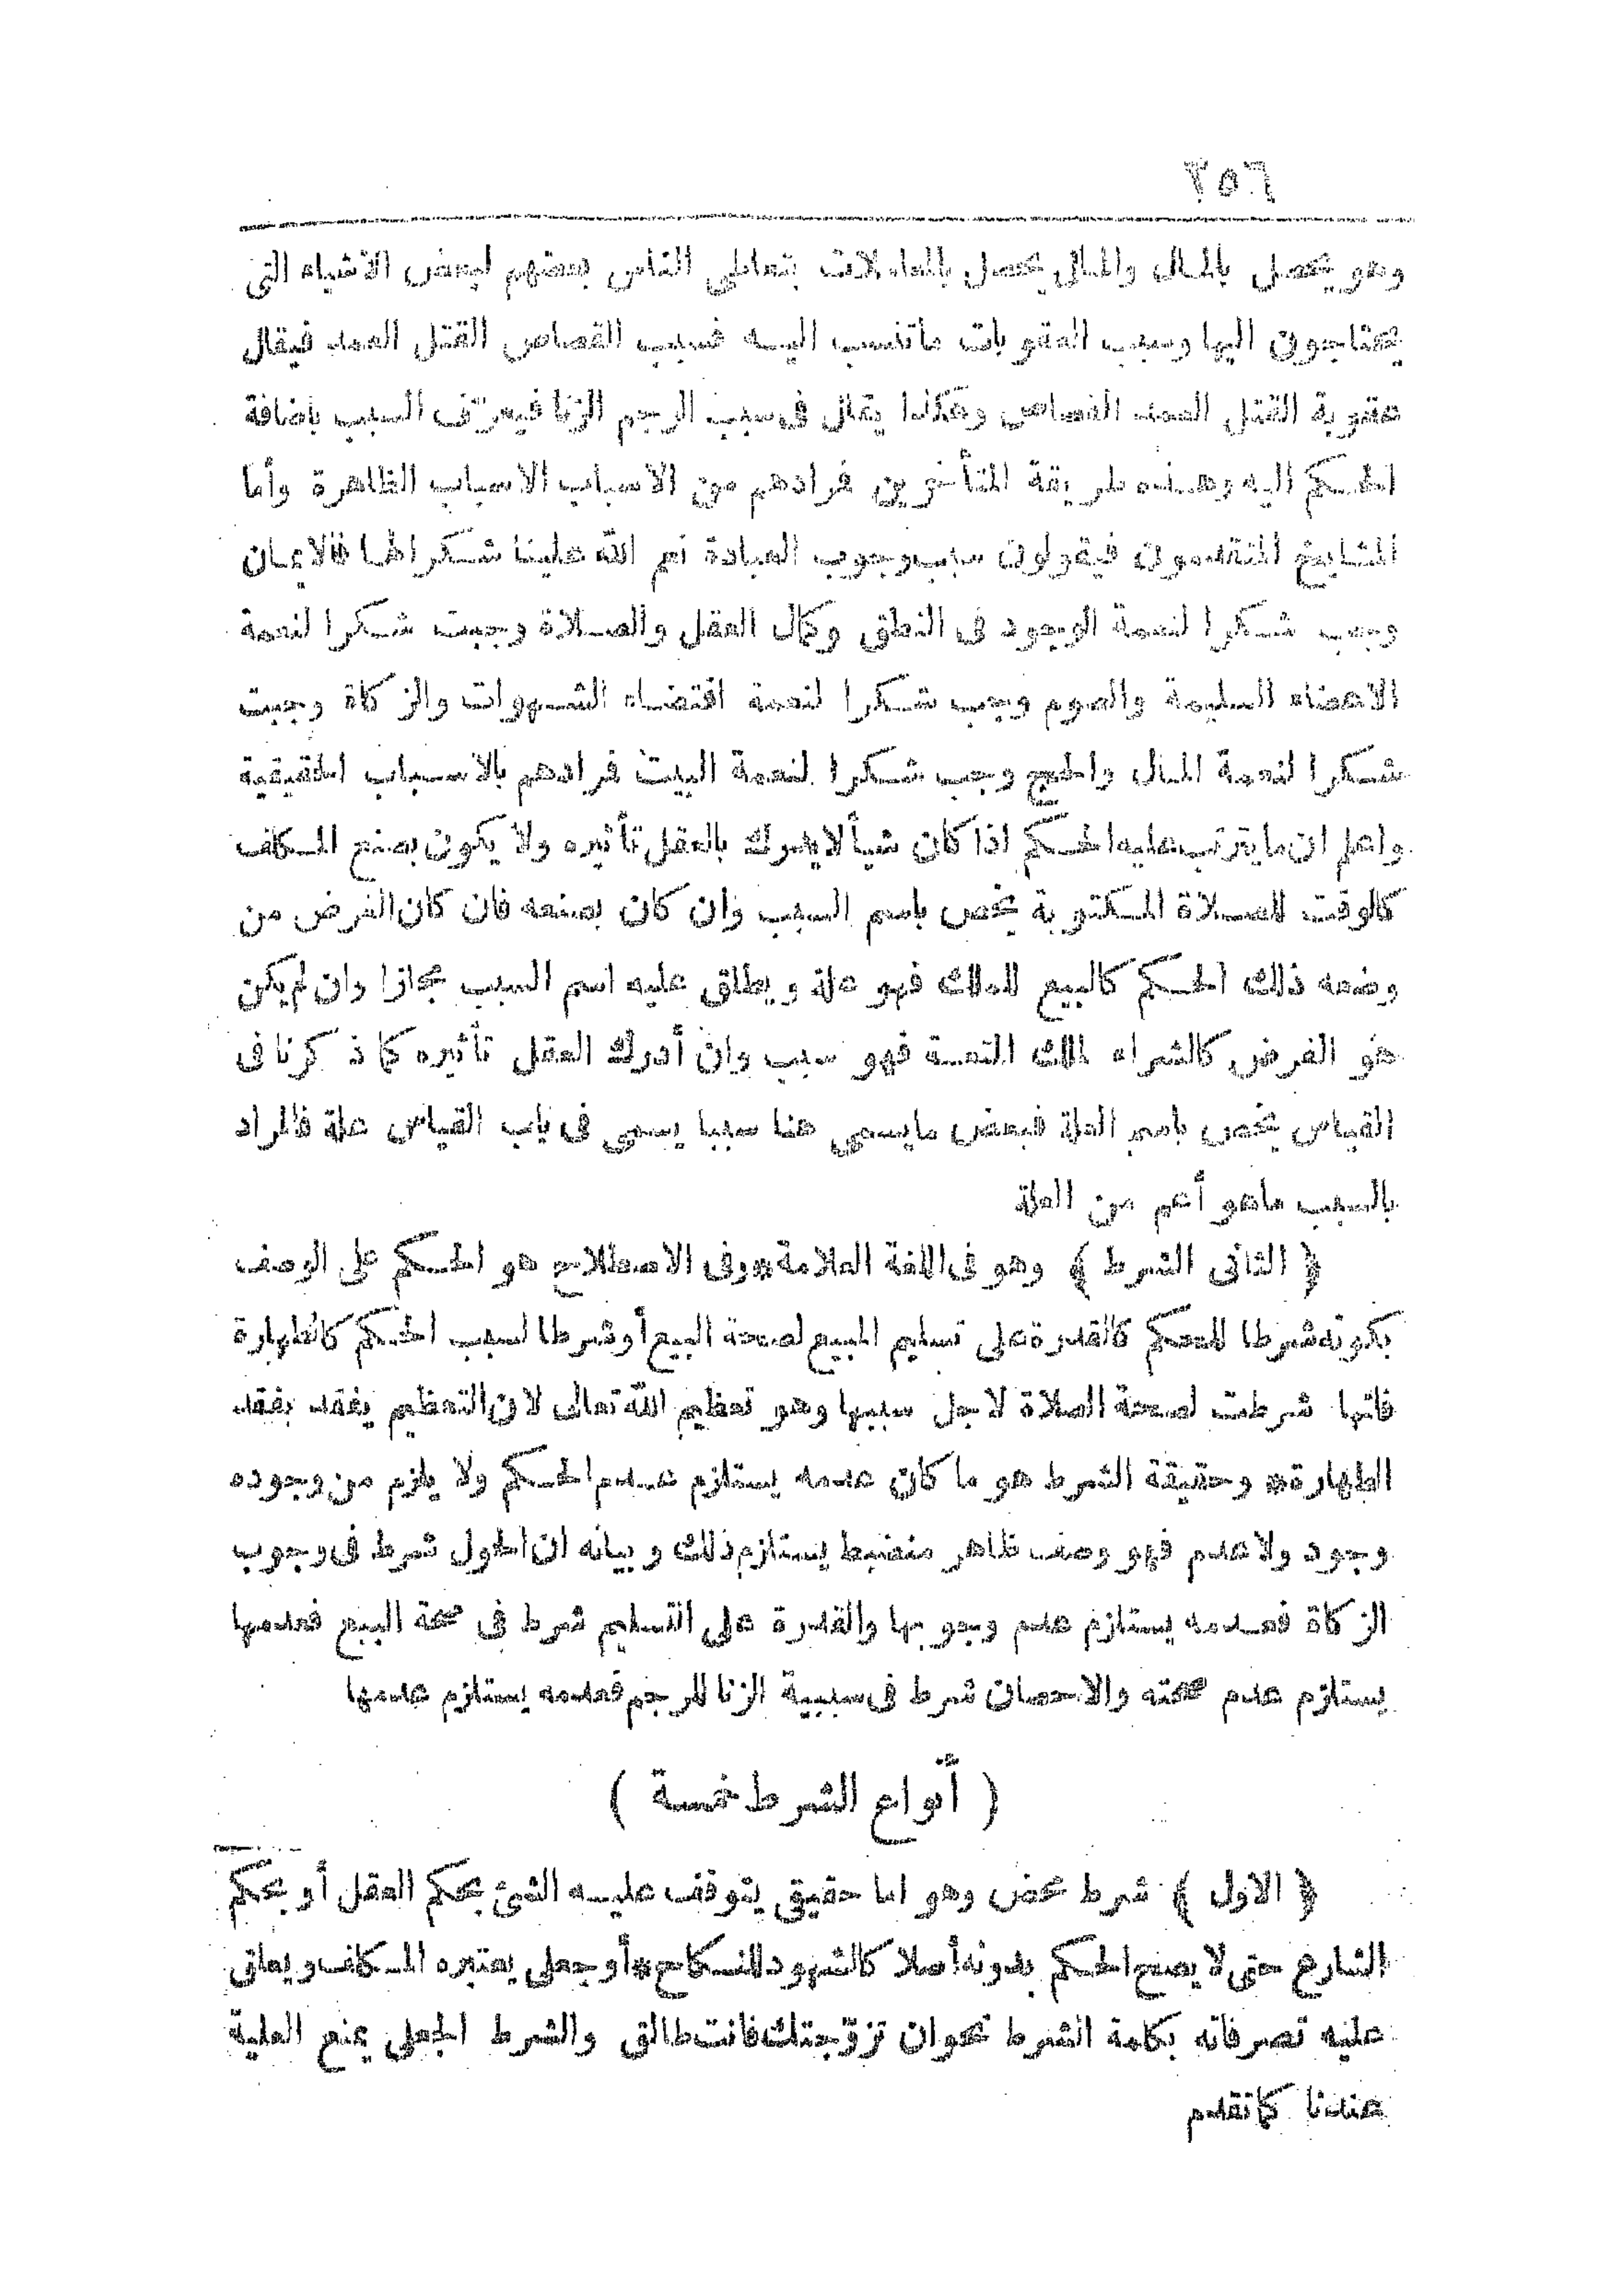 ٢٥٦
وهو يحصل بالمال والمال يحصل بالمعاملات بتعاطى الناس بعضهم لبعض الاشياء التى
يحتاجون اليها وسبب العقوبات ماتنسب اليه فسبب القصاص القتل العمد فيقال
عقوبة القتل العمد القصاص وهكذا يقال فى سبب الرجم الزنا فيعرف السبب باضافة
الحكم اليه وهذه طريقة المتأخرين فرادهم من الاسباب الاسباب الظاهرة وأما
المشايخ المتقدمون فيقولون سبب وجوب العبادة نعم الله علينا شكرا لها فالايمان
وجب شكرا لنعمة الوجود فى النطق وكمال العقل والصلاة وجبت شكرا لنعمة
الاعضاء السليمة والصوم وجب شكرا لنعمة اقتضاء الشهوات والزكاة وجبت
شكرا لنعمة المال والحج وجب شكرا لنعمة البيت فرادهم بالاسباب الحقيقية
واعلم ان ما يترتب عليه الحكم اذا كان شيأ لا يدرك بالعقل تأثيره ولا يكون بصنع المكلف
كالوقت للصلاة المكتوبة يخص باسم السبب وان كان بصنعه فان كان الغرض من
وضعه ذلك الحكم كالبيع للملك فهو علة ويطلق عليه اسم السبب مجازا وان لم يكن
هو الغرض كالشراء لملك المتعة فهو سبب وان أدرك العقل تأثيره كما ذكرنا فى
القياس يخص باسم العلة فبعض ما يسمى هنا سببا يسمى فى باب القياس علة فالمراد
بالسبب ماهو أعم من العلة
﴿ الثانى الشرط ﴾ وهو فى اللغة العلامة * وفى الاصطلاح هو الحكم على الوصف
بكونه شرطا للحكم كالقدرة على تسليم المبيع لصحة البيع أو شرطا لسبب الحكم كالطهارة
فانها شرطت لصحة الصلاة لاجل سببها وهو تعظيم الله تعالى لان التعظيم يفقد بفقد
الطهارة * وحقيقة الشرط هو ما كان عدمه يستلزم عدم الحكم ولا يلزم من وجوده
وجود ولا عدم فهو وصف ظاهر منضبط يستلزم ذلك وبيانه ان الحول شرط فى وجوب
الزكاة فعدمه يستلزم عدم وجوبها والقدرة على التسليم شرط فى صحة البيع فعدمها
يستلزم عدم صحته والاحصان شرط فى سببية الزنا للرجم فعدمه يستلزم عدمها
( أنواع الشرط خمسة )
﴿ الاول ﴾ شرط محض وهو اما حقيقى يتوقف عليه الشئ بحكم العقل أو بحكم
الشارع حتى لا يصح الحكم بدونه أصلا كالشهود للنكاح * أو جعلى يعتبره المكلف ويعلق
عليه تصرفاته بكلمة الشرط نحو ان تزوّجتك فانت طالق والشرط الجعلى يمنع العلية
عندنا كما تقدم